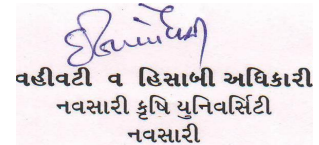 વહીવટી વ હિસાબી અધિકારી
નવસારી કૃષિ યુનિવર્સિટી
નવસારી